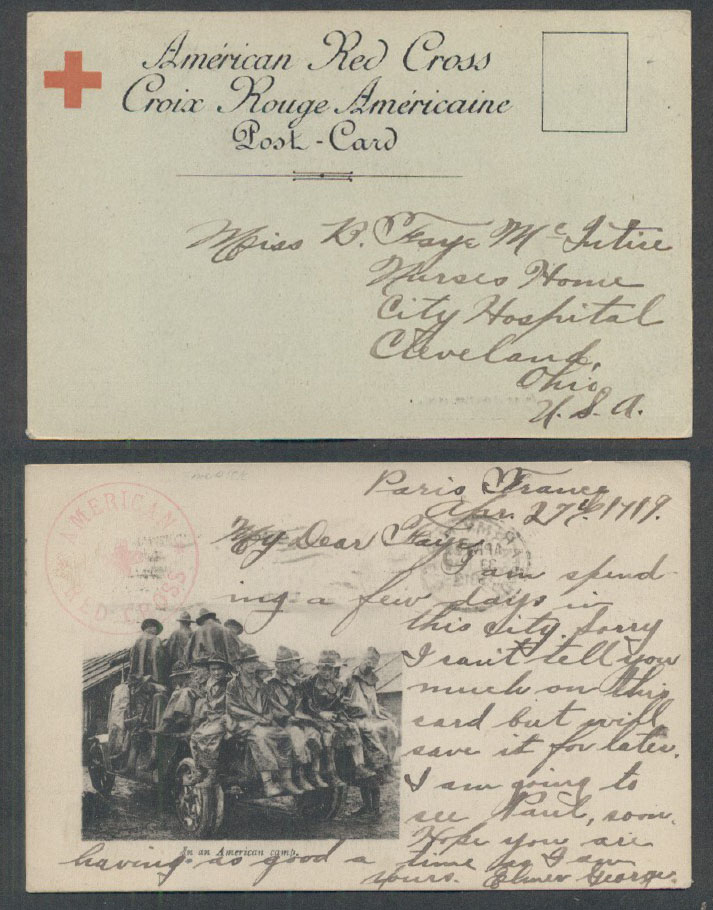 Américan Red Cross
Croix Rouge Américaine
Post-Card
Miss B. Faye McIntire
Nurses Home
City Hospital
Cleveland,
Ohio
U.S.A.
AMERICAN
RED CROSS
Paris France
Apr. 27th 1919.
My Dear Faye,
I am spend-
ing a few days in
this city. Sorry
I can't tell you
much on this
card but will
save it for later.
I am going to
see Paul, soon.
Hope you are
In an American camp.
having as good a time as I am
yours. Elmer George.